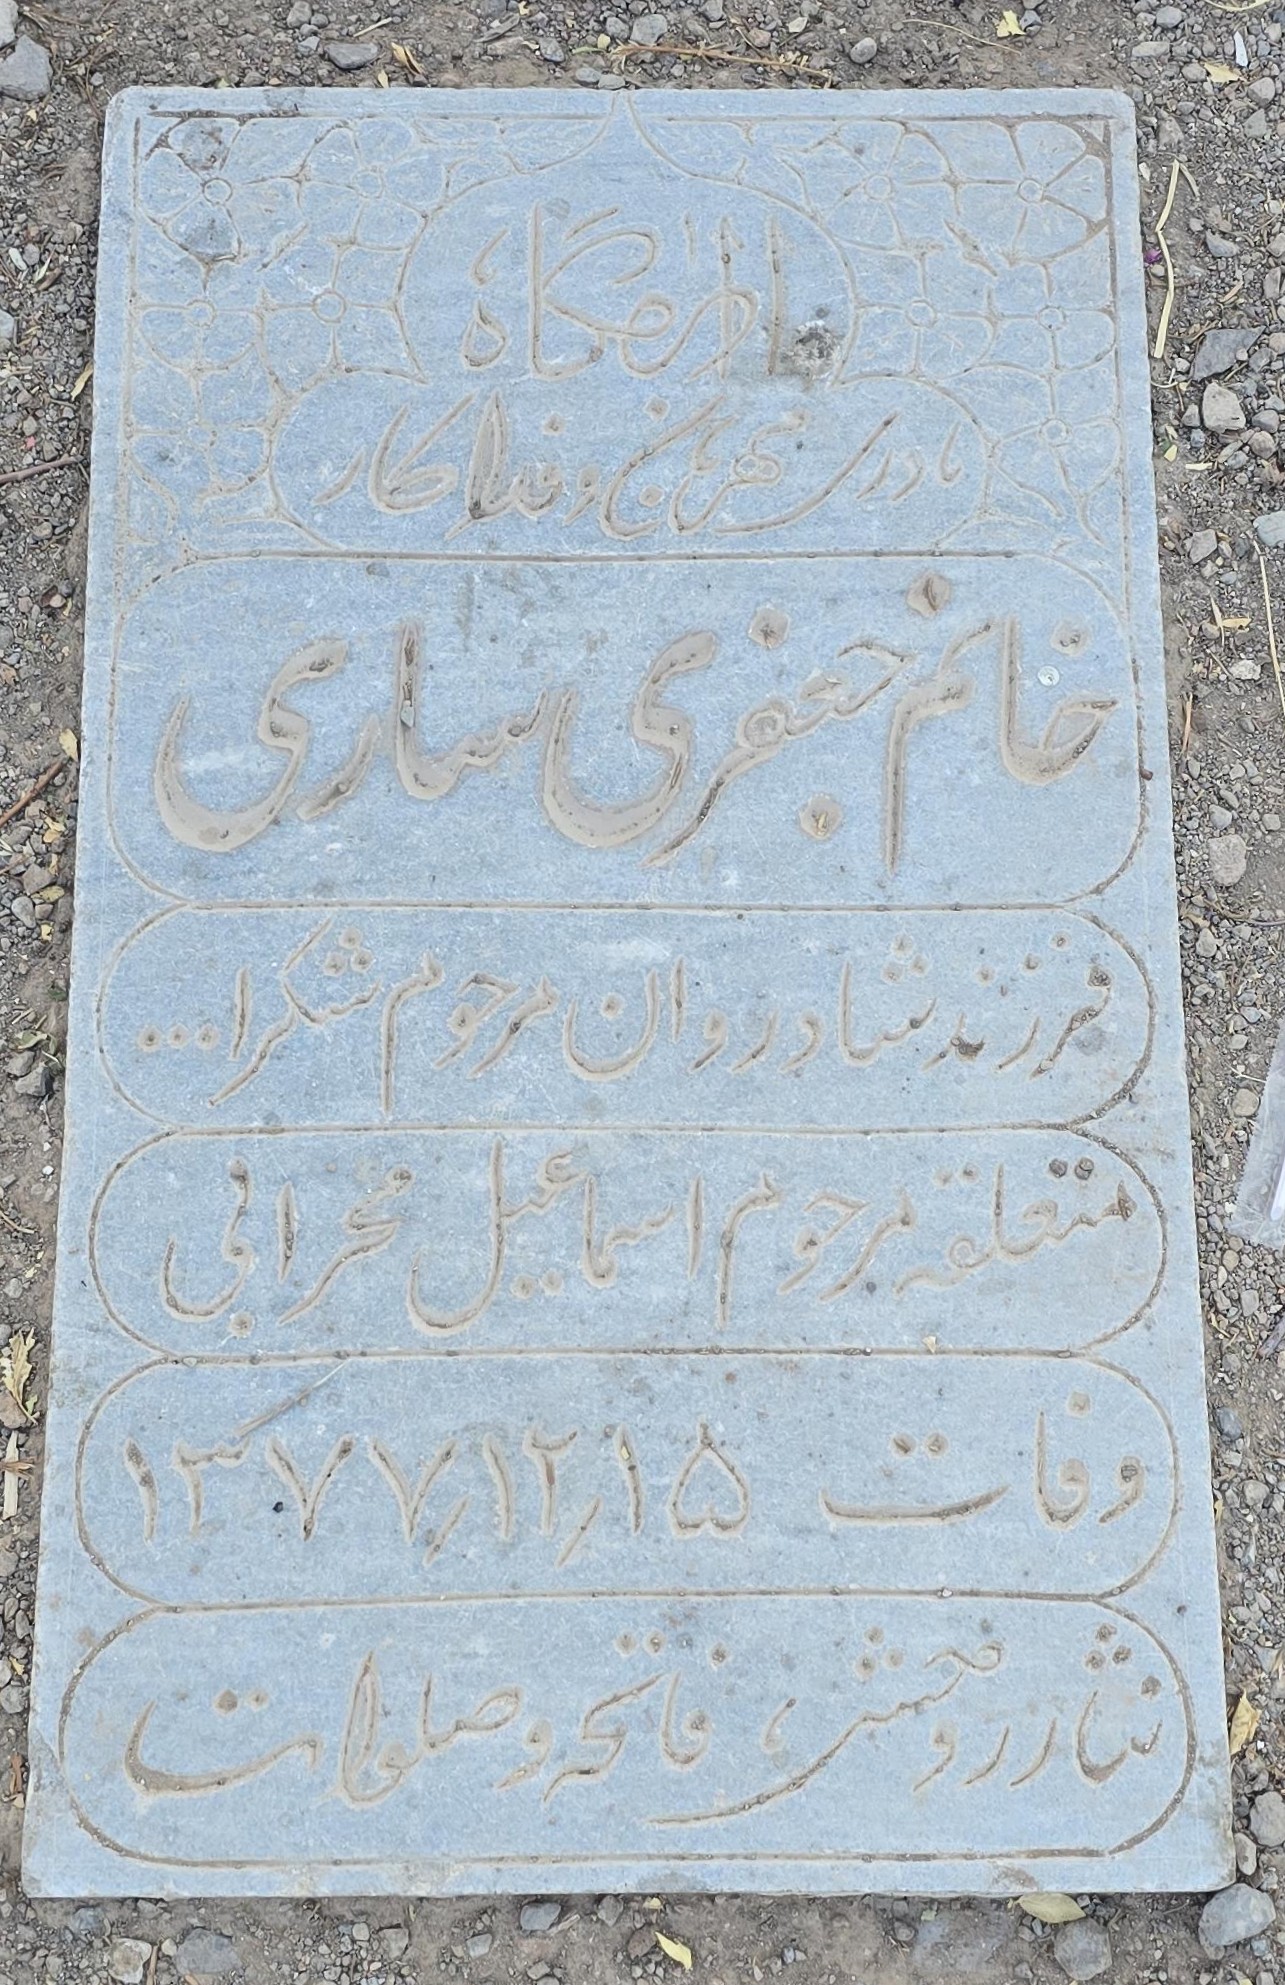 آرامگاه
مادری مهربان و فداکار
خانم جعفری ساری
فرزند شادروان مرحوم شکرا...
متعلقه مرحوم اسماعیل محرابی
وفات ۱۳۷۷٫۱۲٫۱۵
نثار روحش، فاتحه و صلوات